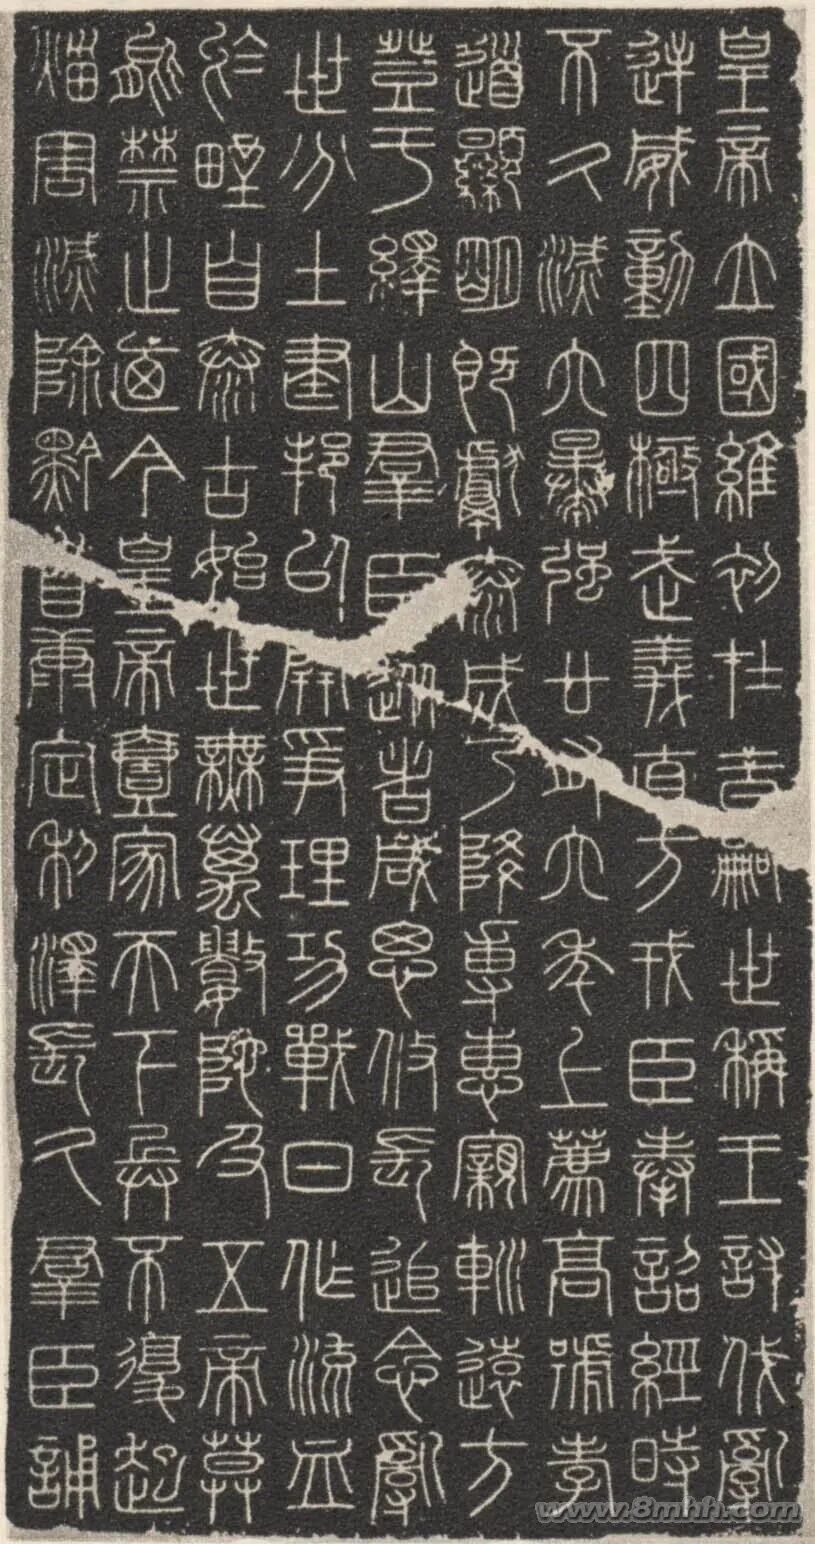 皇帝立國維初在昔嗣世稱王討伐亂
逆威動四極武義直方戎臣奉詔經時
不久滅六暴強廿有六年上薦高號孝
道顯明既獻泰成乃降專惠親巡遠方
登于繹山羣臣從者咸思攸長追念亂
世分土建邦以開爭理功戰日作流血
於野自泰古始世無萬數陀及五帝莫
能禁止迺今皇帝壹家天下兵不復起
災害滅除黔首康定利澤長久羣臣誦
www.8mhh.com